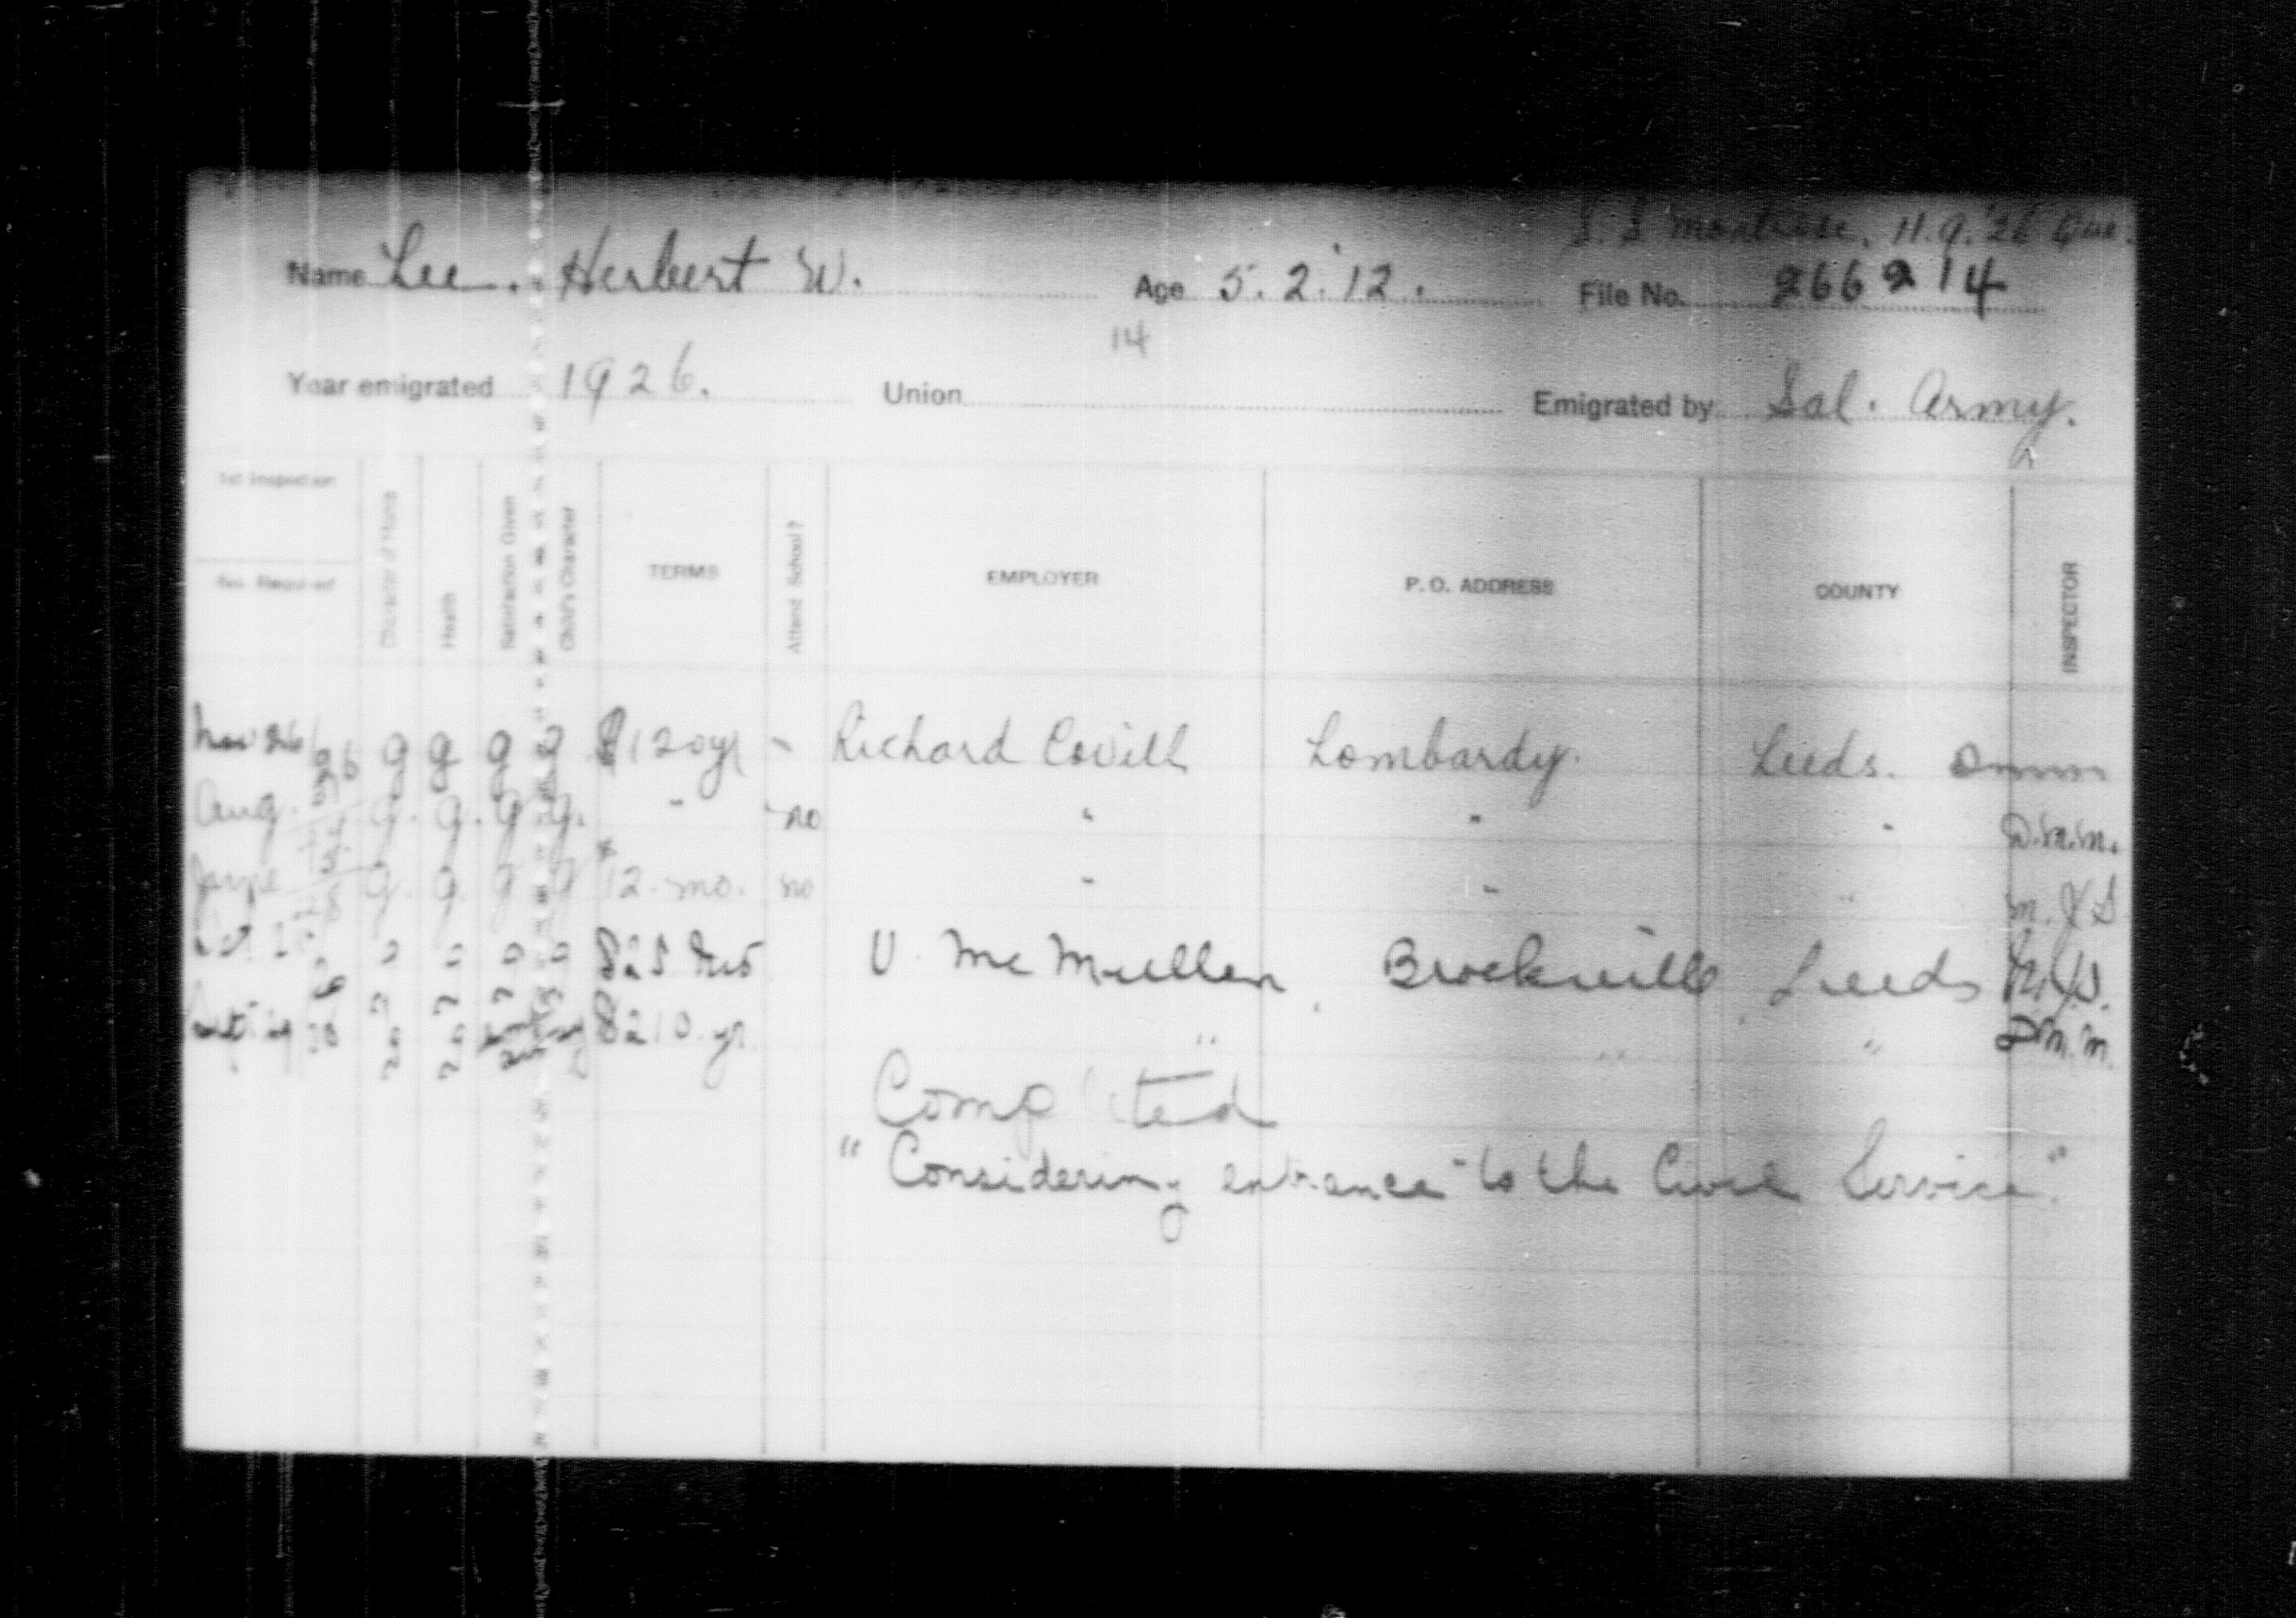 S. S Montrose, 11.9.'26 Que.
Name Lee. Herbert W. Age 5.2.'12. File No. 266214
14
Year emigrated 1926. Union Emigrated by Sal. Army.
1st Inspection
No. Required
Character of Home
Health
Satisfaction Given
Child's Character
TERMS
Attend School?
EMPLOYER
P. O. ADDRESS
COUNTY
INSPECTOR
Nov 26 g g g g $120 yr - Richard Covill Lombardy. Leeds. Dmm
Aug. g. g. g g. " no " " " D.m.m.
g. g. g g 12 mo. no " " " m.J.S
V. McMullen, Brockville, Leeds M.J.S.
Sept. 29 $210 yr. " " " D.M.M.
Completed
"Considering entrance to the Civil Service."